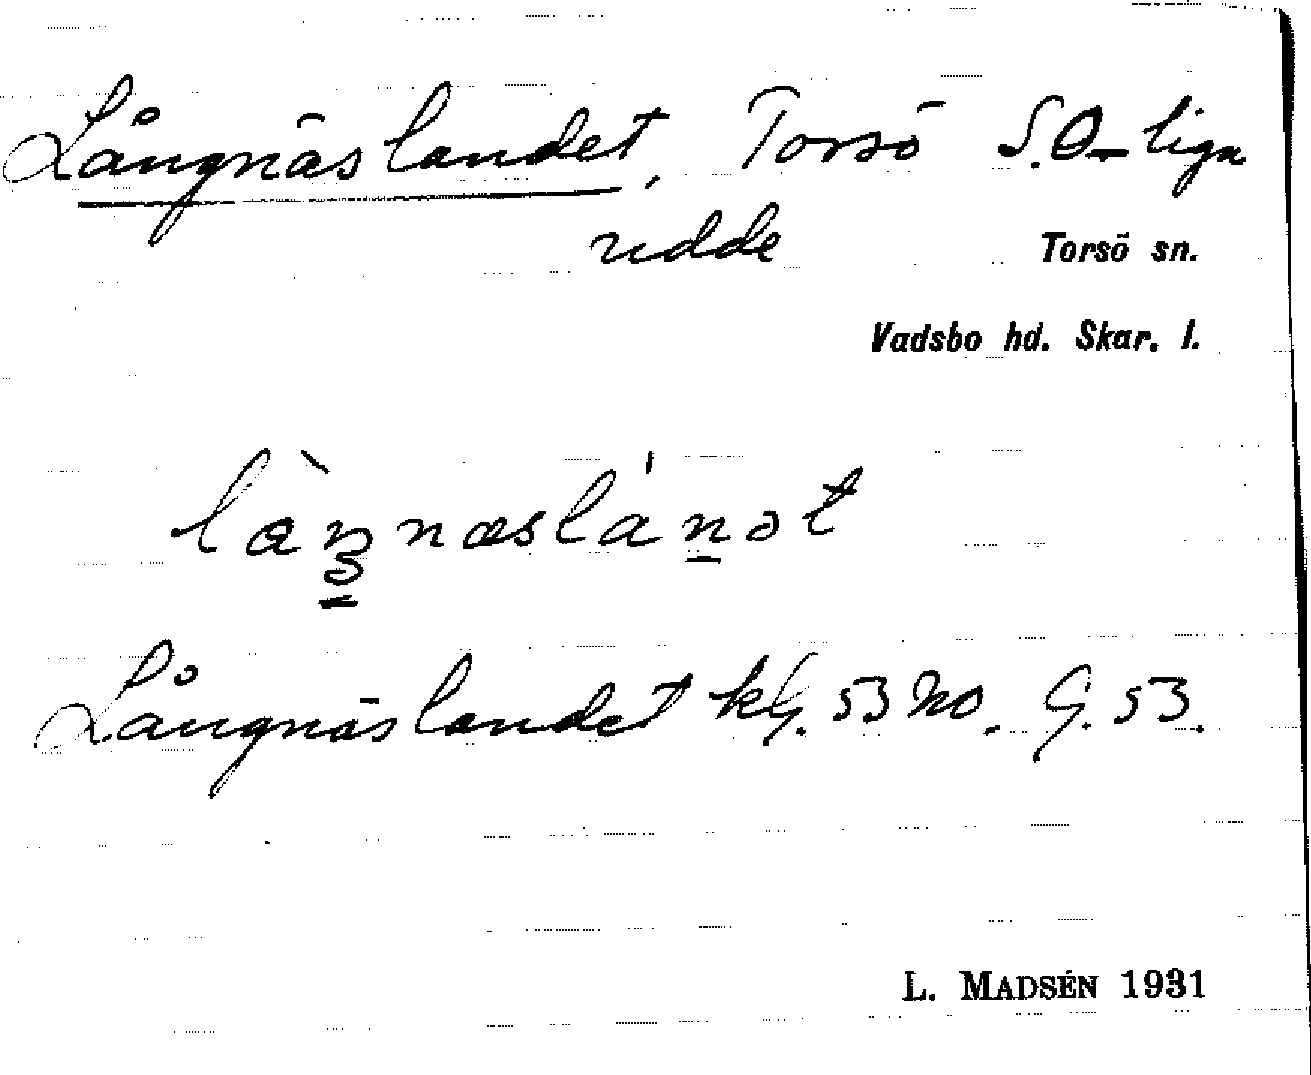 Långnäslandet, Torsö S.O-liga
udde
Torsö sn.
Vadsbo hd. Skar. l.
Långnäslandet kG. 53 no. G. 53.
L. MADSÉN 1931